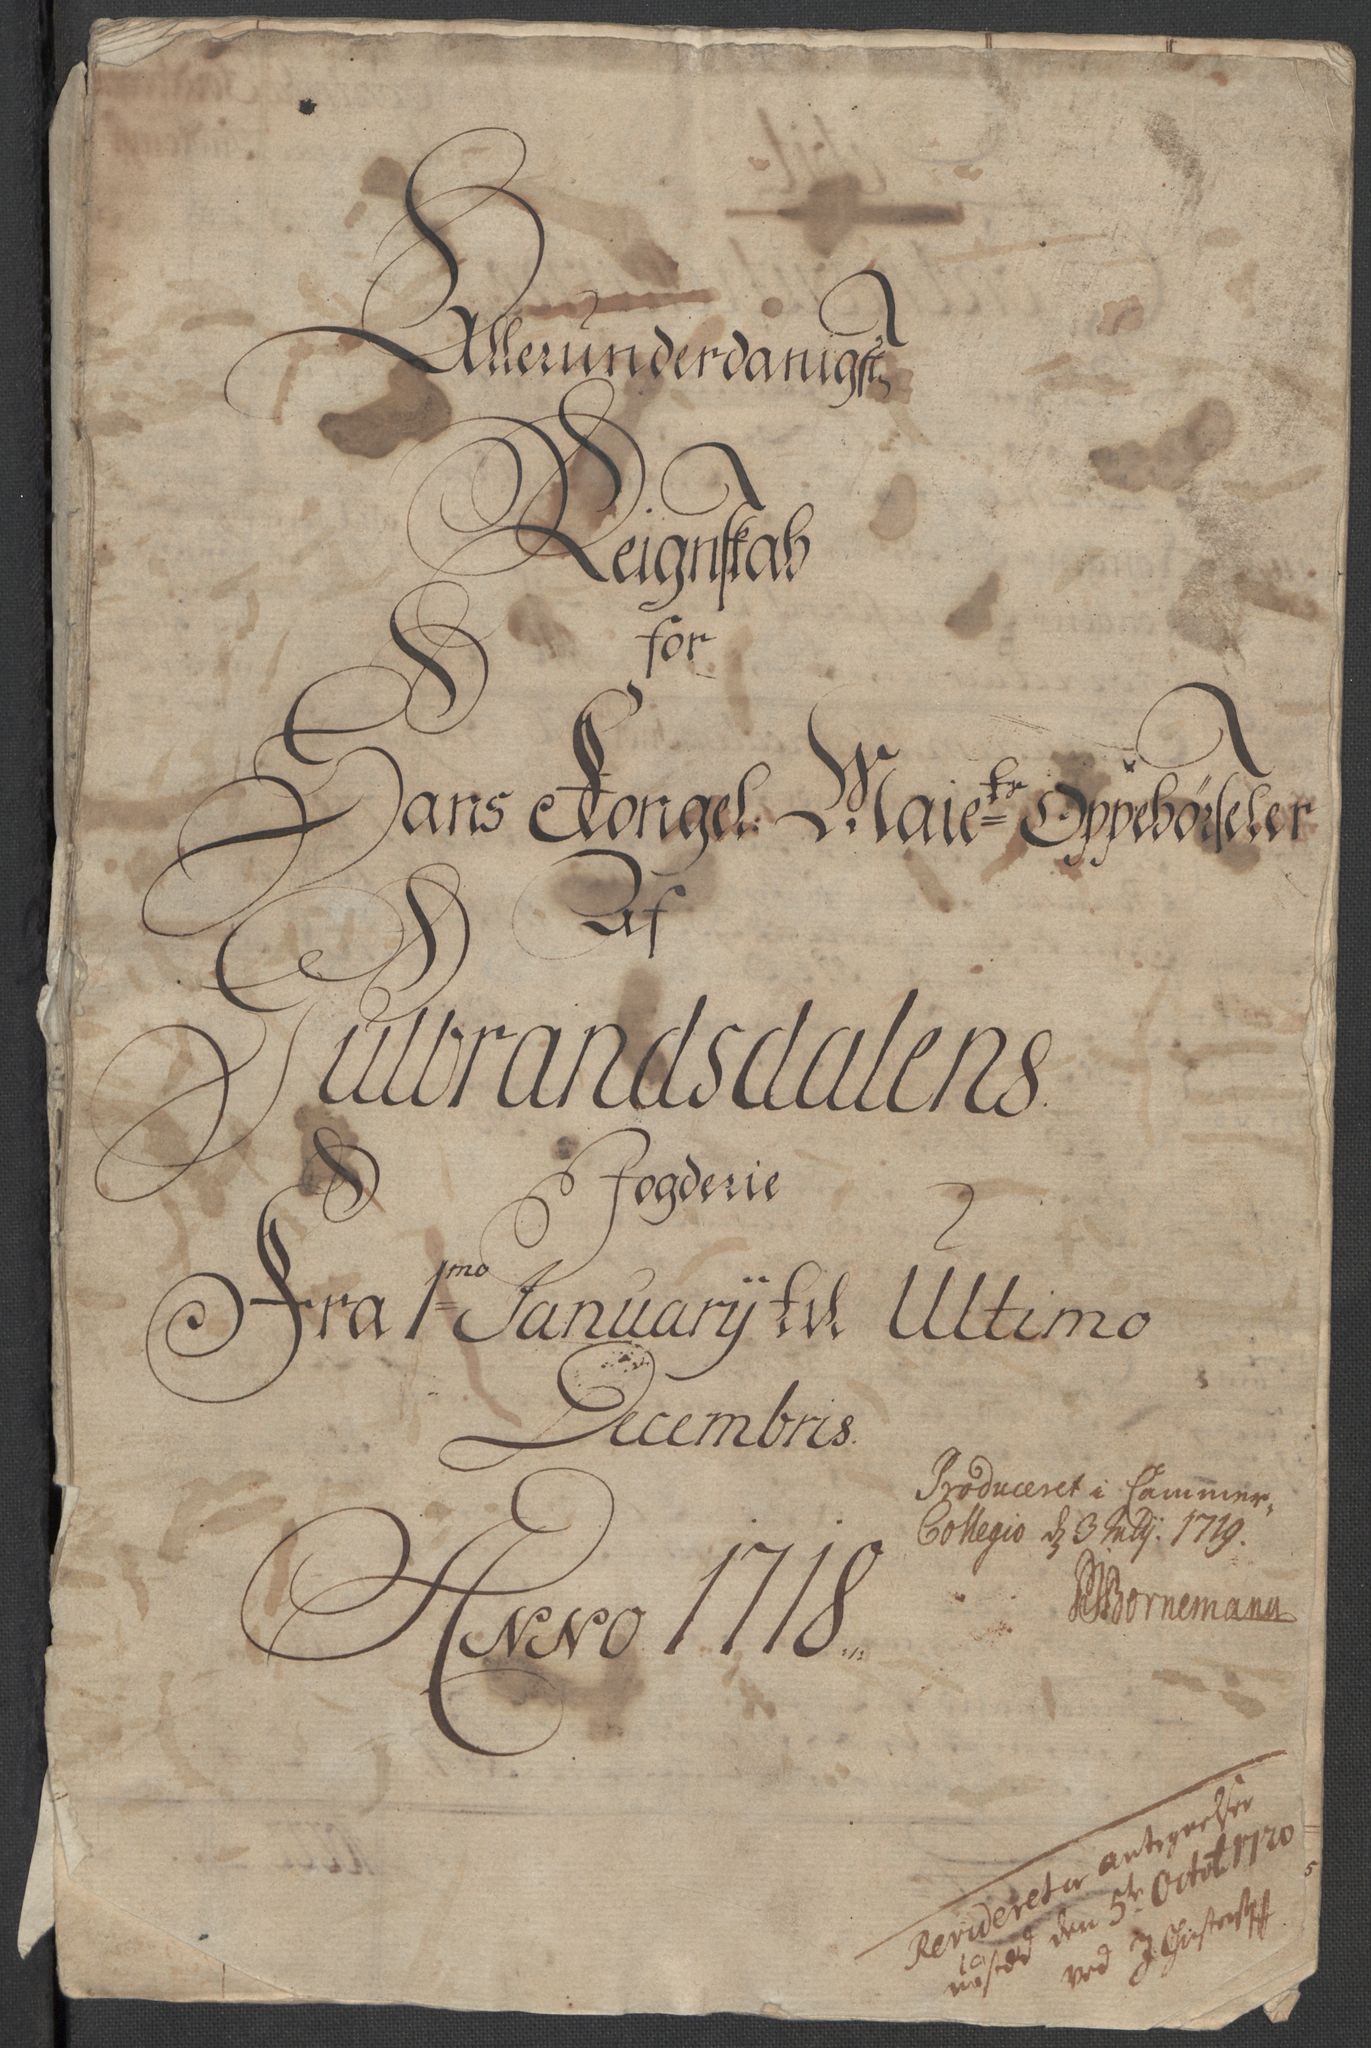 Allerunderdanigste
Reignskab
for
Hans Kongel: Maiets Oppebørseler
Af
Gulbrandsdalens
Fogderie
Fra 1mo Januarij til Ultimo
Decembris.
Anno 1718
Produceret i Cammer-
Collegio d 3 July. 1719.
Bornemann
Revideret Antegnelser
den 5te Octob: 1720
ved